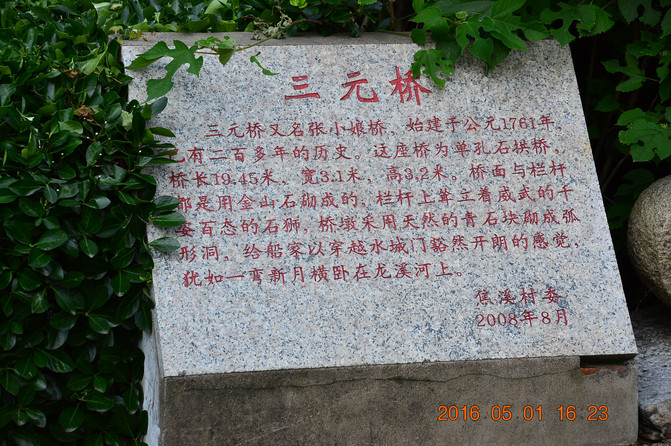 三元桥
三元桥又名张小娘桥，始建于公元1761年，
已有二百多年的历史。这座桥为单孔石拱桥，
桥长19.45米，宽3.1米，高3.2米。桥面与栏杆
都是用金山石砌成的，栏杆上耸立着威武的千
姿百态的石狮，桥墩采用天然的青石块砌成弧
形洞，给船家以穿越水城门豁然开朗的感觉，
犹如一弯新月横卧在龙溪河上。
焦溪村委
2008年8月
2016.05.01 16:23